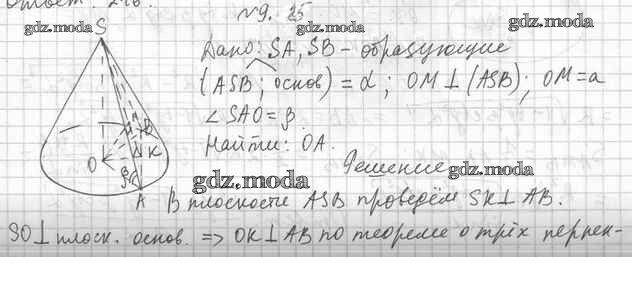 Ответ:
№9. 25
gdz.moda
gdz.moda
gdz.moda
S
Дано: SA, SB - образующие
(ASB; основ) = α; OM ⊥ (ASB); OM = a
∠SAO = β
Найти: OA.
M B
O K
β
A
Решение
gdz.moda
gdz.moda
В плоскости ASB проведём SK ⊥ AB.
SO ⊥ плоск. основ. => OK ⊥ AB по теореме о трёх перпен-